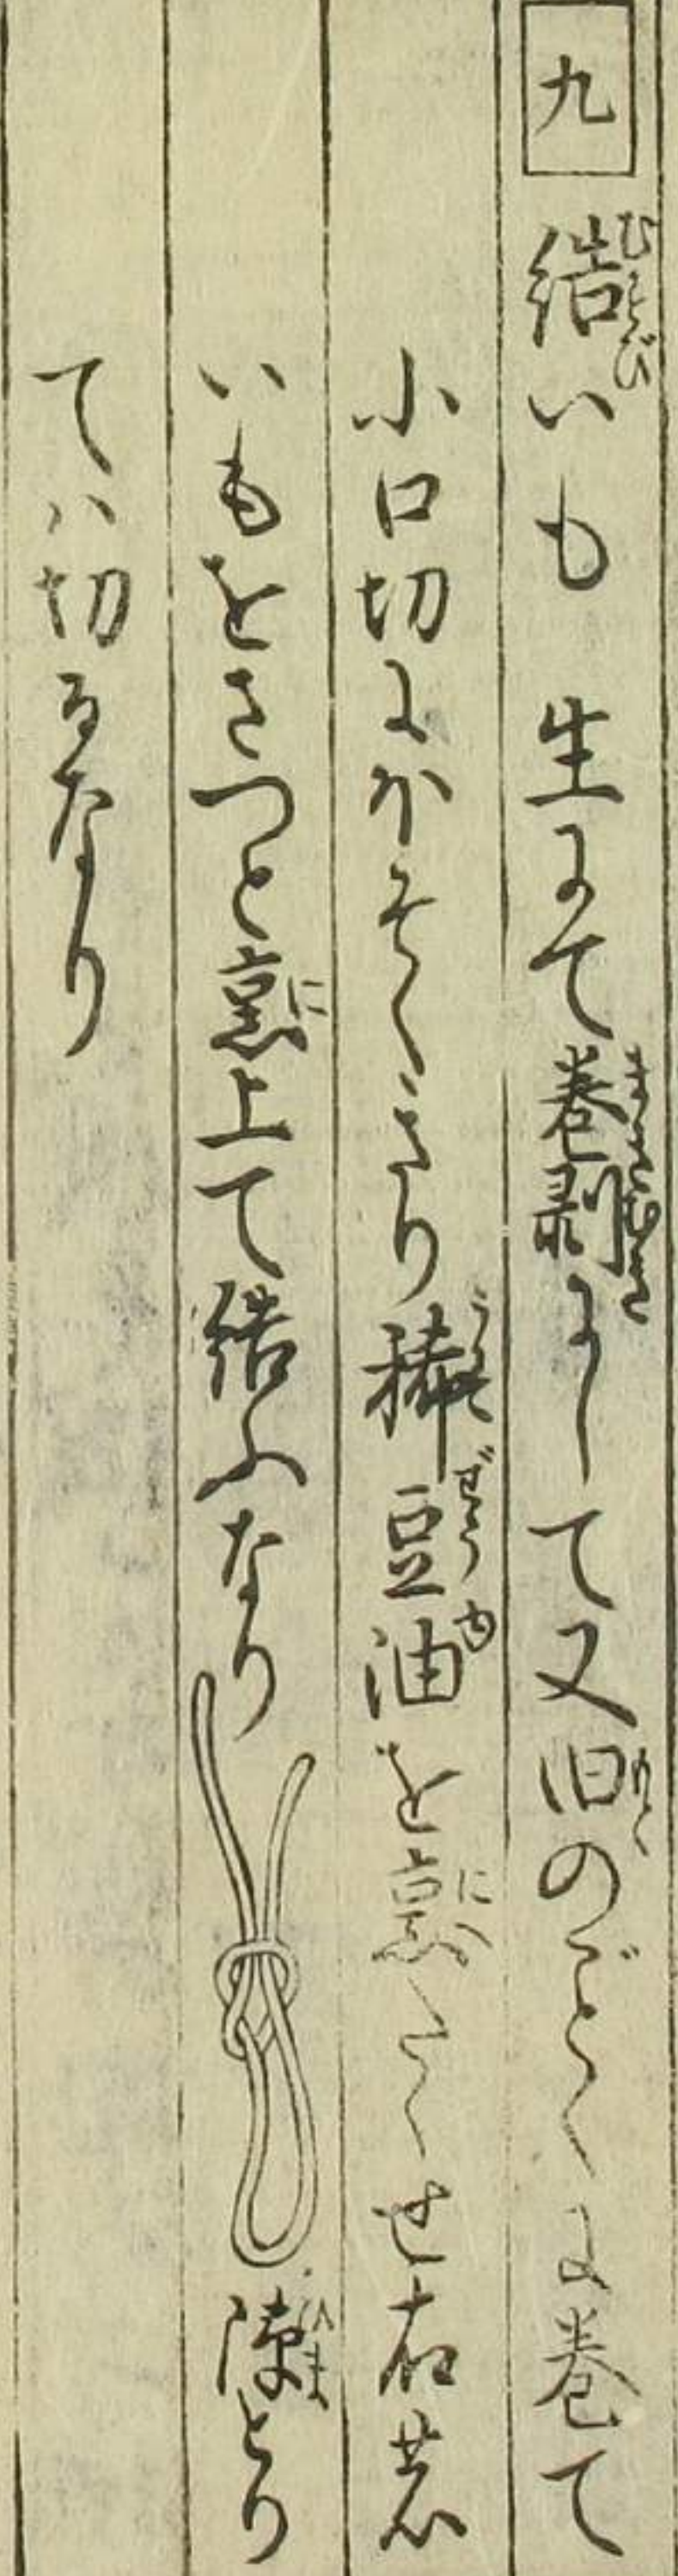 九 結いも 生にて巻剥にして又旧のごとくに巻て
小口切にほそくきり稀豆油を烹たゝせ右の
いもをさつと烹上て結ふなり 隙とり
てハ切るなり